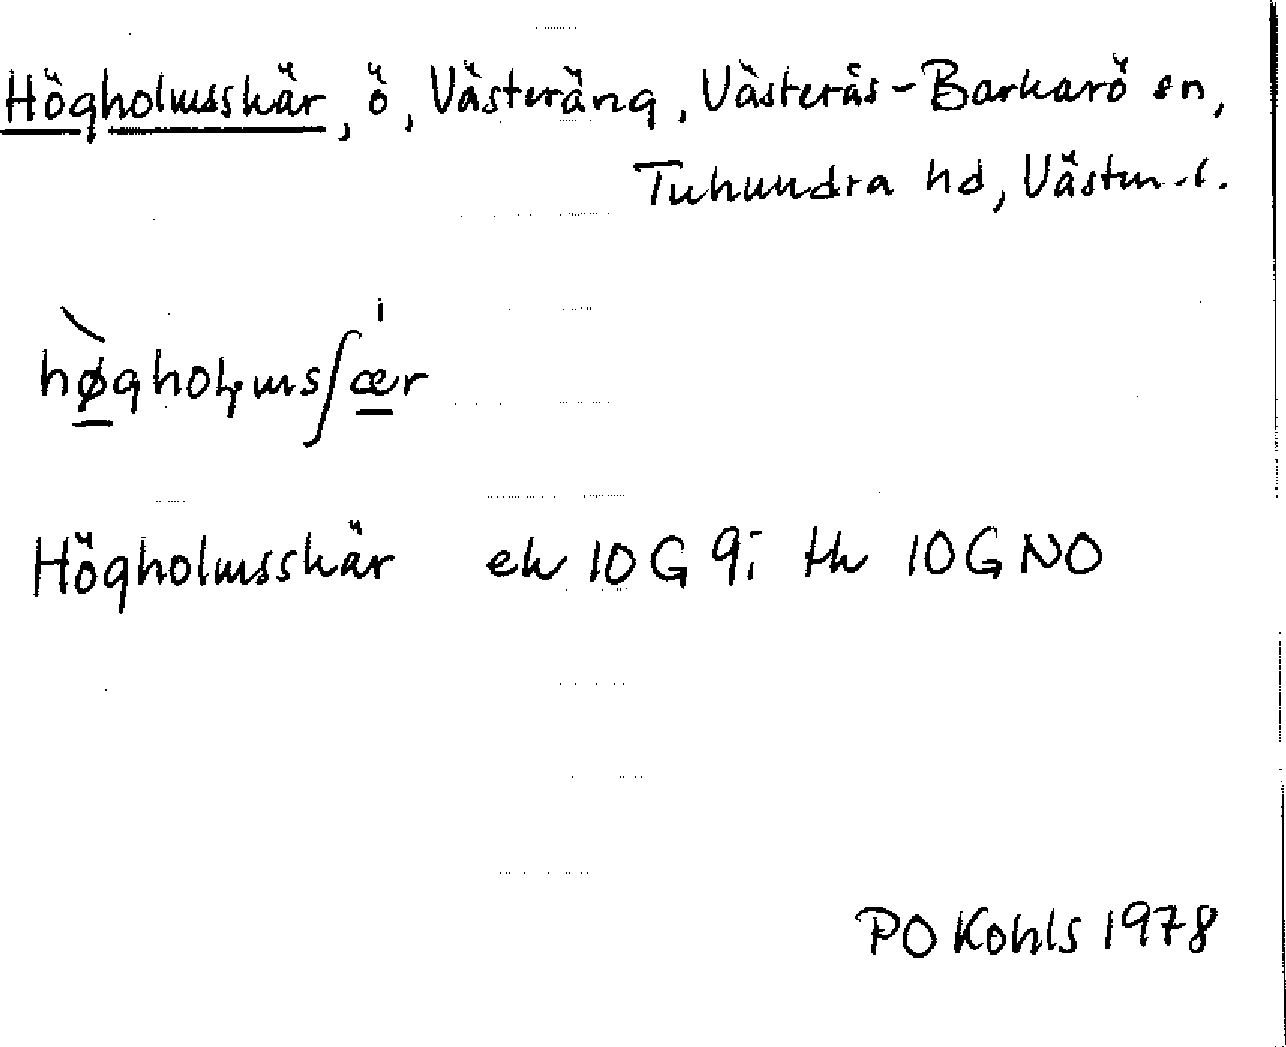 Högholmsskär, ö, Västeräng, Västerås-Barkarö sn,
Tuhundra hd, Västm.l.
hø̀gholmsʃær
Högholmsskär ek 10G 9i tk 10G NO
PO Kohls 1978